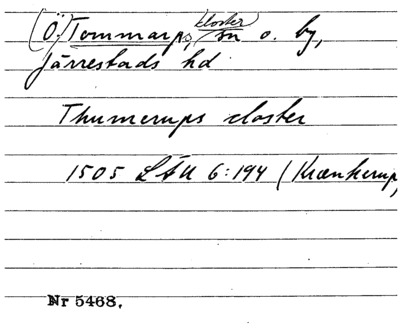 (Ö.) Tommarps, kloster/sn o. by,
Järrestads hd
Thumerups closter
1505 LÅU 6:194 (Krænkerup,
Nr 5468.